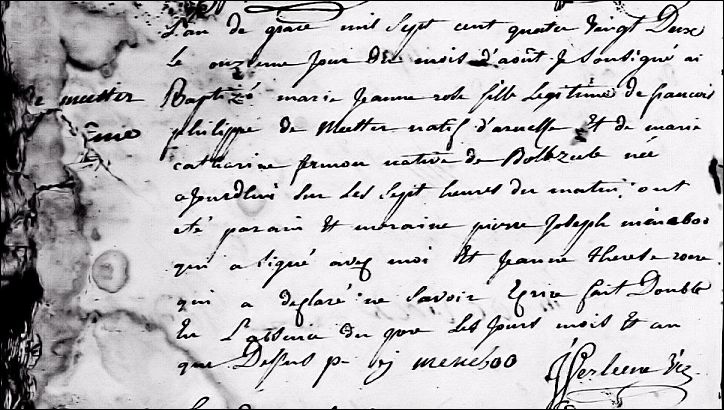 L'an de grace mil sept cent quater vingt Deux
le onzieme jour du mois d'août je sousigné ai
de mutter Baptizé marie jeanne rose fille Legitime de francois
philippe de Mutter natif d'aruelle Et de marie
catharine simon native de née
ajourdhui sur Les sept heures du matin; ont
eté parain Et meraine pierre Joseph meneboo
qui a signé avec moi Et Jeanne therese
qui a declaré ne savoir Ecrire fait Double
En L'absence du pere Les jours mois Et an
que Desus p j meneboo